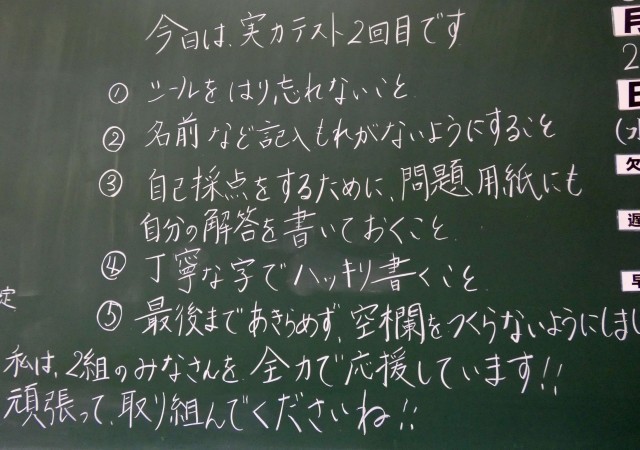 今日は、実力テスト2回目です
① シールをはり忘れないこと
② 名前など記入もれがないようにすること
③ 自己採点をするために、問題用紙にも
自分の解答を書いておくこと
④ 丁寧な字でハッキリ書くこと
⑤ 最後まであきらめず、空欄をつくらないようにしまし
私は、2組のみなさんを、全力で応援しています!!
頑張って、取り組んでくださいね!!
定
月
2
日
(水
欠
遅
早